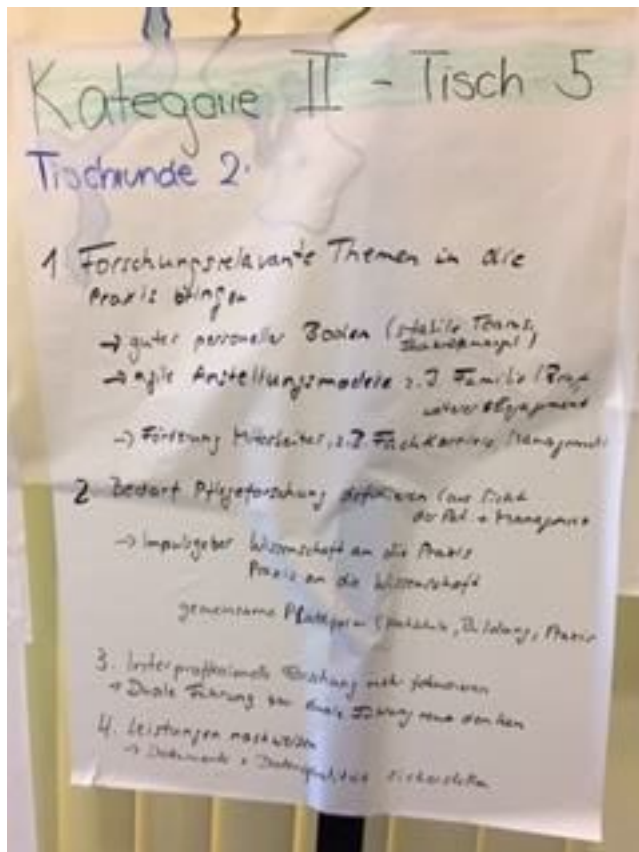 Kategorie II - Tisch 5
Tischrunde 2.
1 Forschungsrelevante Themen in die
Praxis bringen
→ guter personeller Boden (stabile Teams,
→ agile Anstellungsmodele z.B Familie / Beruf
→ Förderung Mitarbeiter, z.B. Fachkarriere, Management
2 Bedarf Pflegeforschung definieren (aus Sicht
der Pat. + Management
→ Impulsgeber Wissenschaft an die Praxis
Praxis an die Wissenschaft
gemeinsame Plattform ( , Bildung, Praxis
3. Interprofessionelle Forschung mehr fokussieren
→ Duale Führung neu denken
4. Leistungen nachweisen
→ Dokumente + Datenqualität sicherstellen